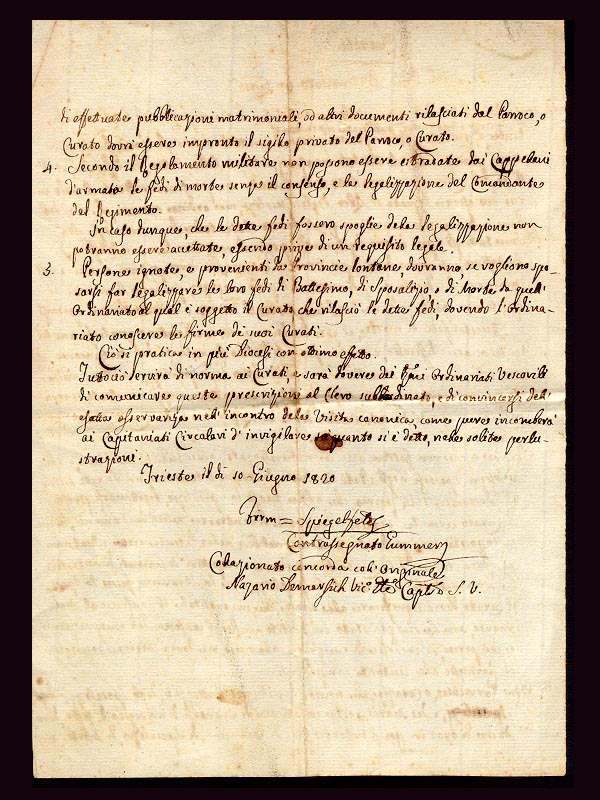 di effettuate pubblicazioni matrimoniali, od altri documenti rilasciati dal Parroco, o
Curato dovrà essere impronto il sigillo privato del Parroco, o Curato.
4. Secondo il Regolamento militare non possono essere estradate dai Cappellani
d'armata le fedi di morte senza il consenso, e la legalizzazione del Comandante
del Regimento.
In caso dunque, che le dette fedi fossero spoglie della legalizzazione non
potranno essere accettate, essendo prive di un requisito legale.
5. Persone ignote, e provenienti da Provincie lontane, dovranno se vogliono spo-
sarsi far legalizzare le loro fedi di Battesimo, di Sposalizio, o di Morte da quell'
Ordinariato al qual è soggetto il Curato che rilasciò le dette fedi, dovendo l'Ordina-
riato conoscere le firme de suoi Curati.
Ciò si pratica in più Diocesi con ottimo effetto.
Tuttociò servirà di norma ai Curati, e sarà dovere dei Ordinariati Vescovili
di comunicare queste prescrizioni al Clero subordinato, e di convincersi dell'
esatta osservanza nell'incontro della Visita canonica, come pure incomberà
ai Capitaniati Circolari d'invigilare quanto si è detto, nelle solite perlu-
strazioni.
Trieste il dì 10 Giugno 1820
Firm = Spiegelfeld
Contrassegnato
Collazionato concorda coll'Originale
Nazario S. V.